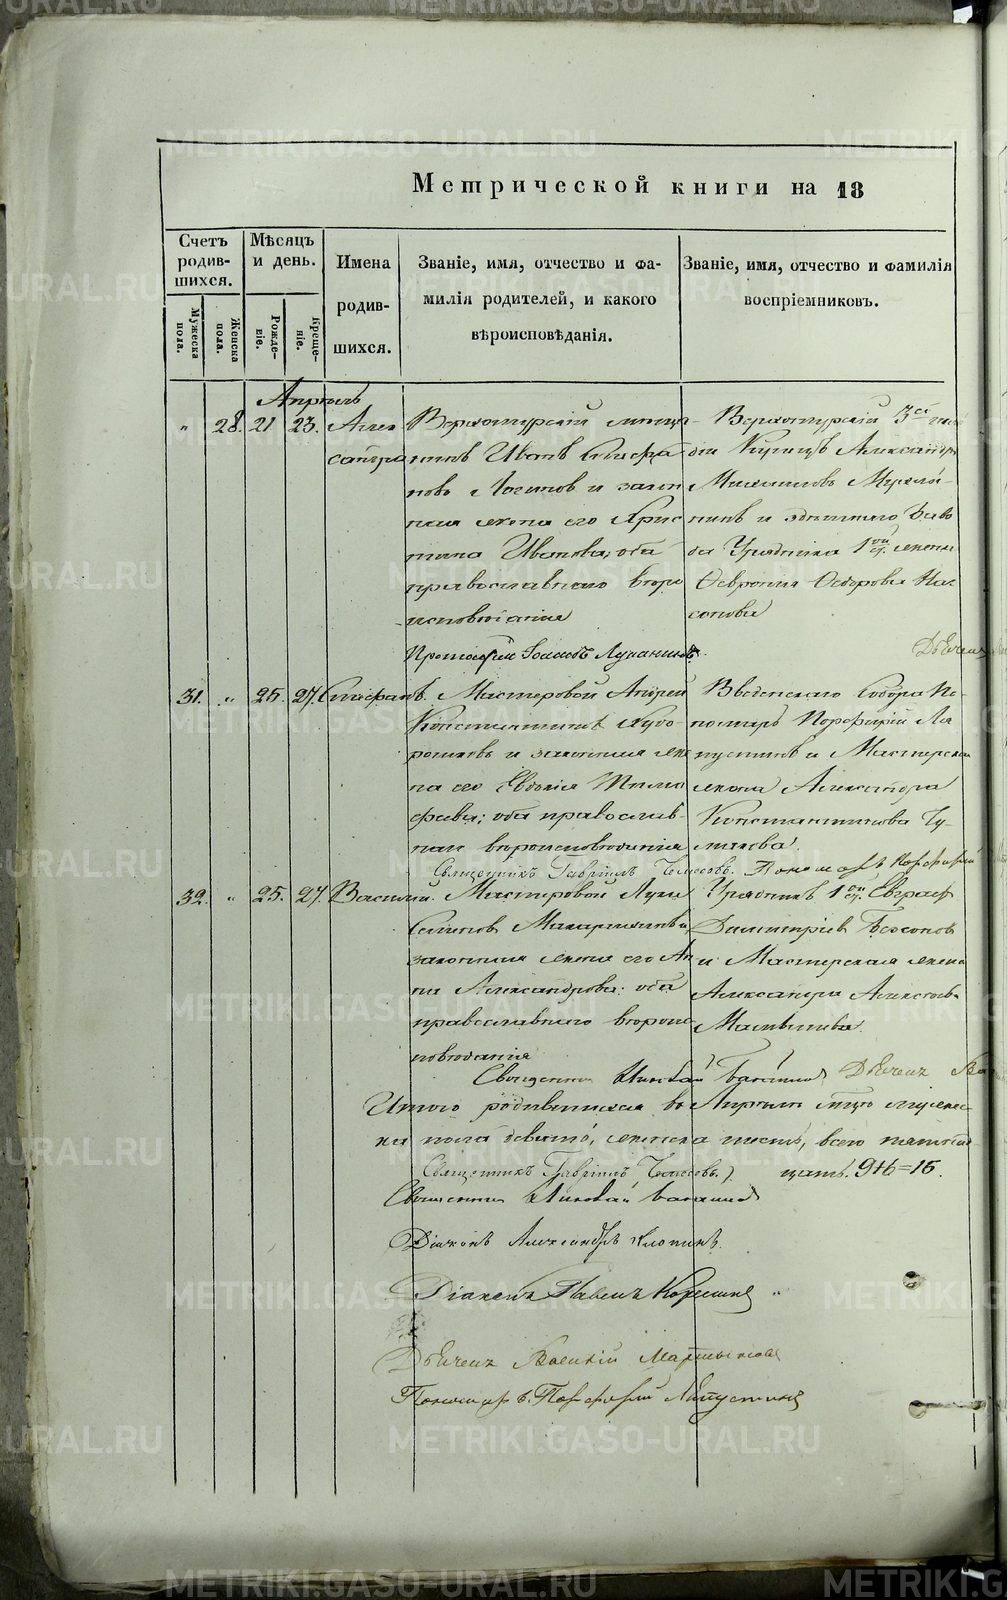 Метрической книги на 18
Счетъ родив-шихся.
Мѣсяцъ и день.
Имена родив-шихся.
Званіе, имя, отчество и фа-
милія родителей, и какого
вѣроисповѣданія.
Званіе, имя, отчество и фамилія
воспріемниковъ.
Мужеска пола.
Женска пола.
Рожде-ніе.
Креще-ніе.
Апрель
" 28. 21 23.
Алек
сандра
Верхотурскій мѣща
нинъ Иванъ Стефа
новъ Логинов и закон
ная жена его Хрис
тина Иванова; оба
православнаго вѣро
исповѣданія
Протоіерей Іоаннъ Луканинъ.
Верхотурскій 3ей гиль
діи Купецъ Александръ
и здѣшняго Заво
да Урядника 1ой ст. жена
Феврония Федорова
Дьячекъ
31. " 25. 27. Стефанъ.
Мастеровой Андрей
Константиновъ
и законная же
на его Евдокія Тимо
феева; оба православ-
наго вѣроисповѣданія
Священникъ Гавріилъ
Введенскаго Собора По
номарь Порфирій Ла
пустинъ и Мастерская
жена Александра
Константинова
Пономарь Порфирій
32. " 25. 27. Василій.
Мастеровой Лука
Семенов
законная жена его Ан
на Александрова: оба
православнаго вѣроис
повѣданія
Урядникъ 1ой ст. Евграф
Димитріев Безсонов
и Мастерская жена
Александра
Священник Николай Дьячекъ Ва
Итого родившихся въ Апрѣлѣ мѣсяцѣ мужес
ка пола девять, женска шесть, всего пятнад
цать. 9+6=15.
Священникъ Гавріилъ
Священник Николай
Діаконъ Александръ
Діаконъ Павелъ
Дьячекъ Василій
Пономарь Порфирій Лапустинъ
METRIKI.GASO-URAL.RU